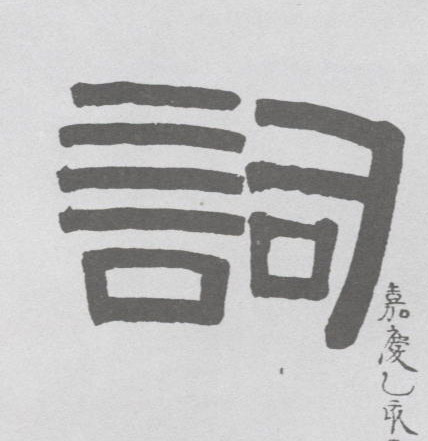 詞
嘉慶乙亥